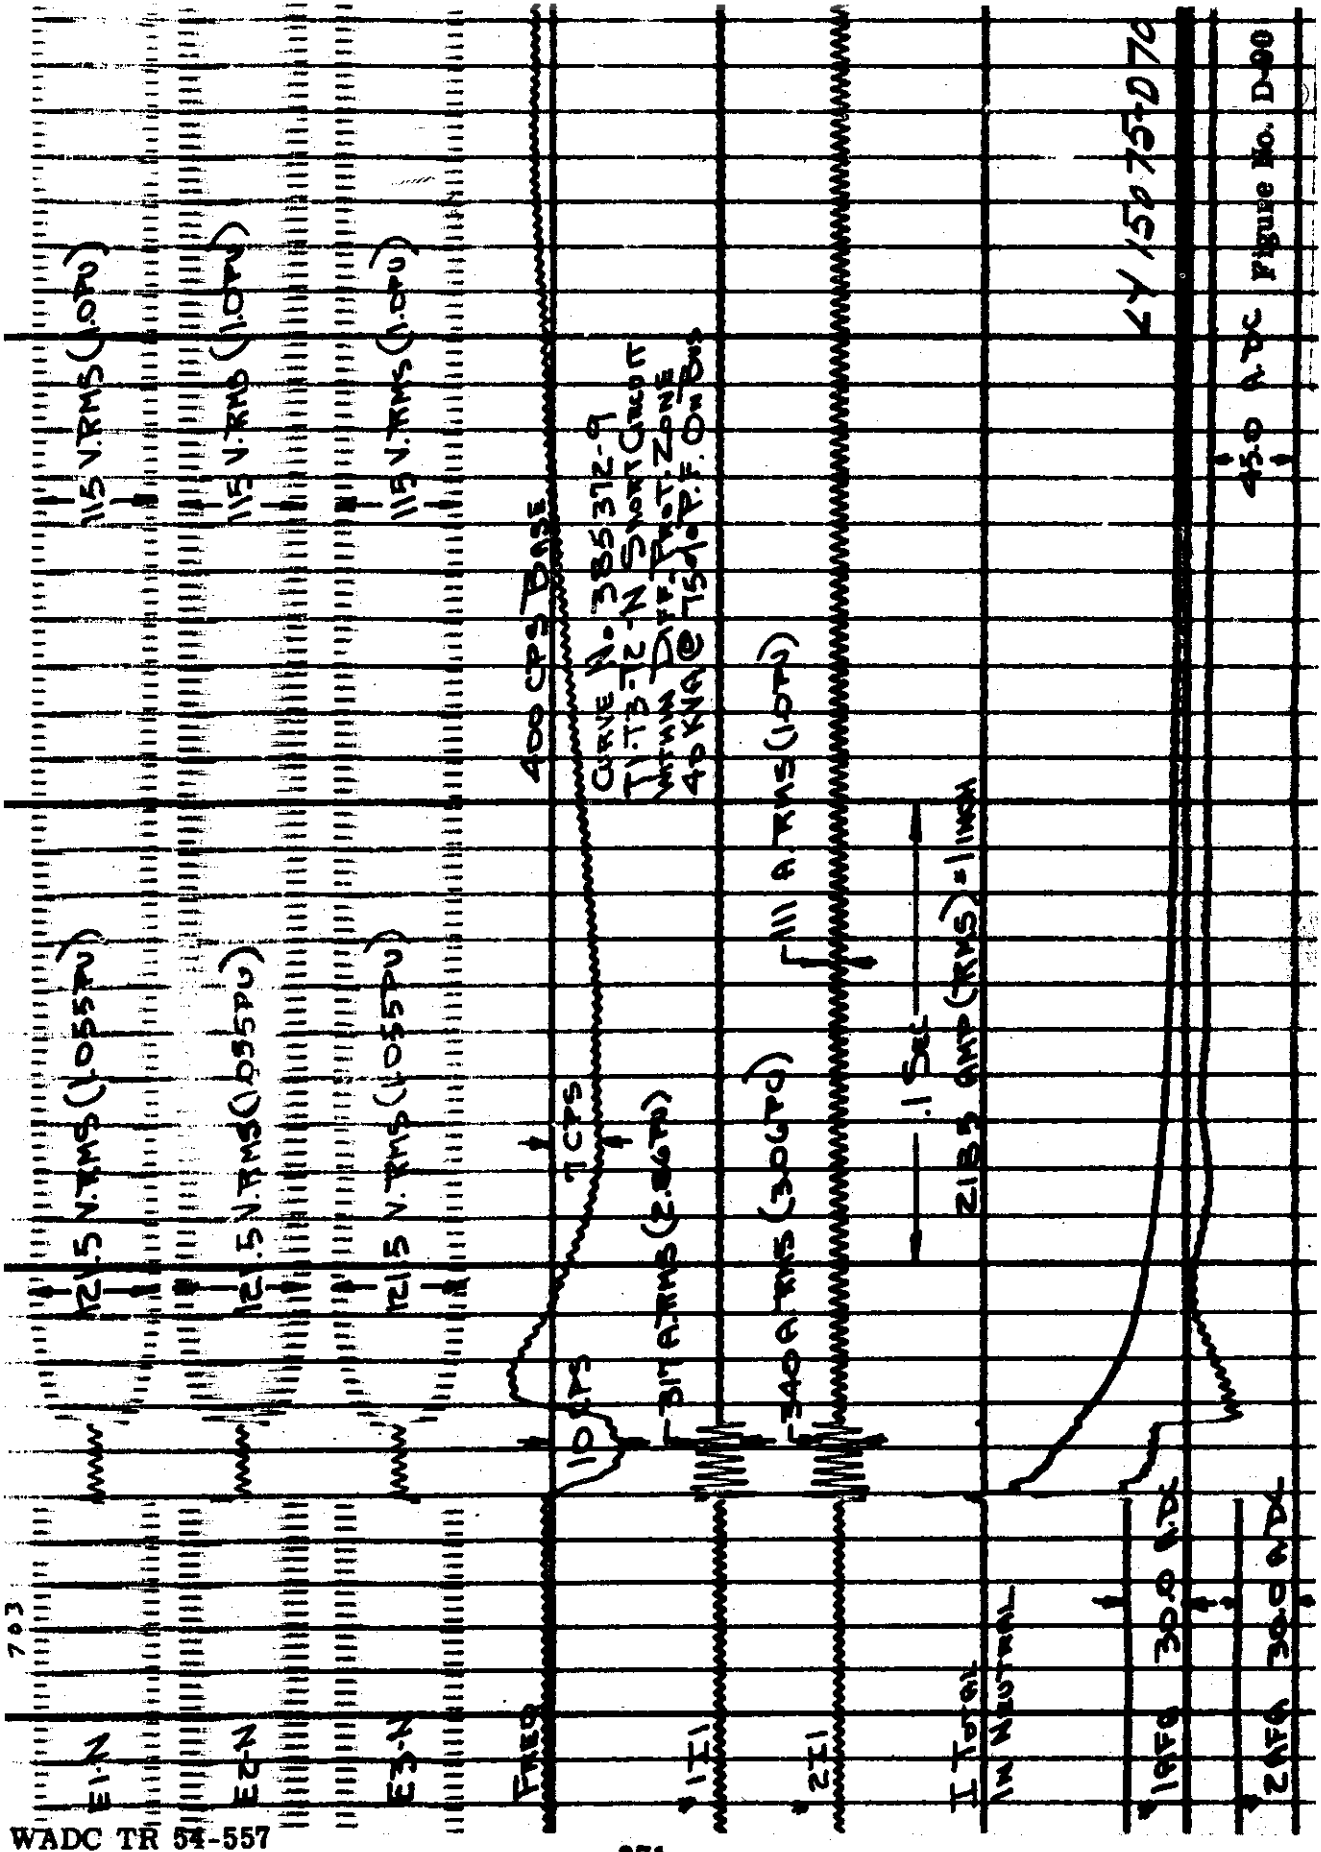 703
E1-N
121.5 V.RMS (1.055PU)
115 V.RMS (1.0PU)
E2-N
121.5 V.RMS (1.055PU)
115 V.RMS (1.0PU)
E3-N
121.5 V.RMS (1.055PU)
115 V.RMS (1.0PU)
FREQ
10 CPS
7 CPS
400 CPS BASE
CURVE No. 385372-9
T1-T3-T2-N SHORT CIRCUIT
WITHIN DIFF. PROT. ZONE
40 KVA @ 75% P.F. ON BUS
1I1
317 A.RMS (2.86PU)
2I1
340 A.RMS (3.06PU)
111 A.RMS (1.0PU)
.1 SEC
I TOTAL
IN NEUTRAL
2185 AMP (RMS) = 1 INCH
LY 15075-D70
30.0 A.DC
30.0 A DC
45.0 A.DC
Figure No. D-90
WADC TR 54-557